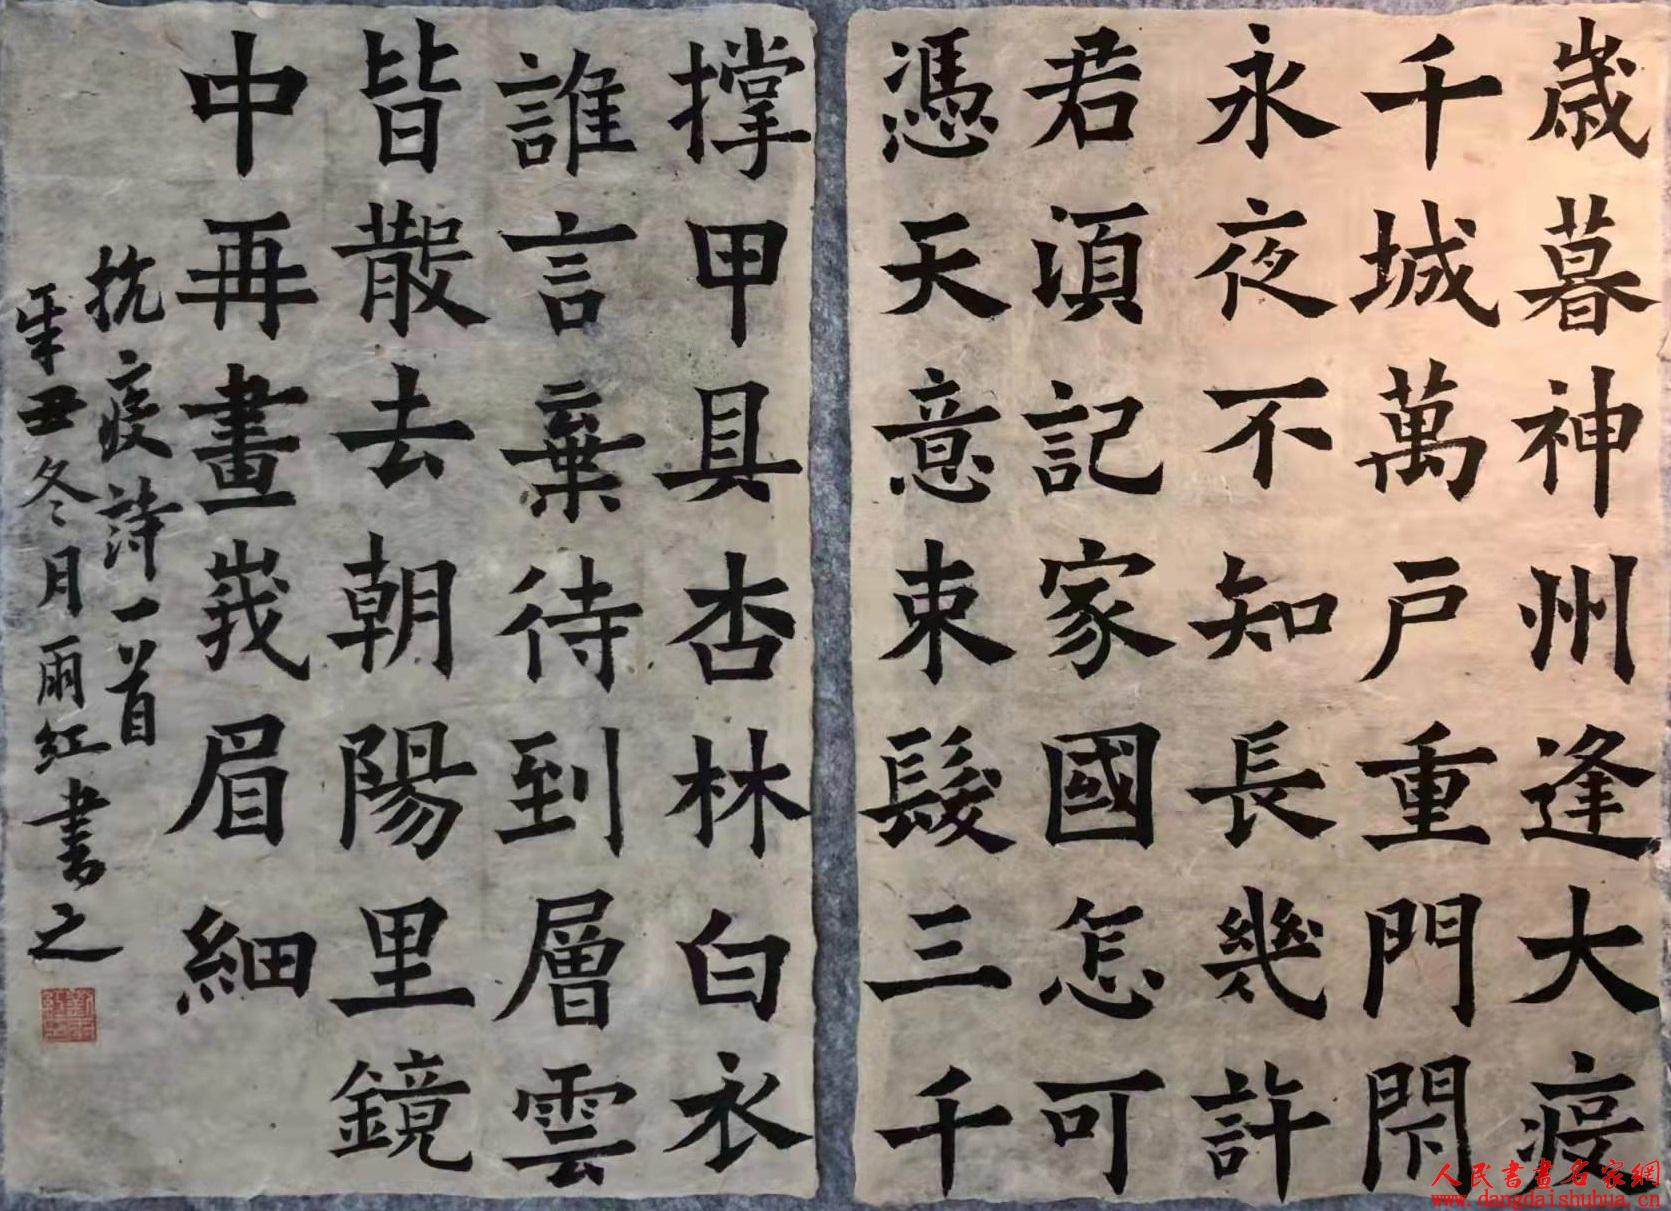 歲暮神州逢大疫
千城萬戸重門閇
永夜不知長幾許
君須記家國怎可
憑天意束髮三千
撑甲具杏林白衣
誰言棄待到層雲
皆散去朝陽里鏡
中再畫峩眉細
抗疫詩一首
辛丑冬月雨紅書之
人民書畫名家網
www.dangdaishuhua.cn